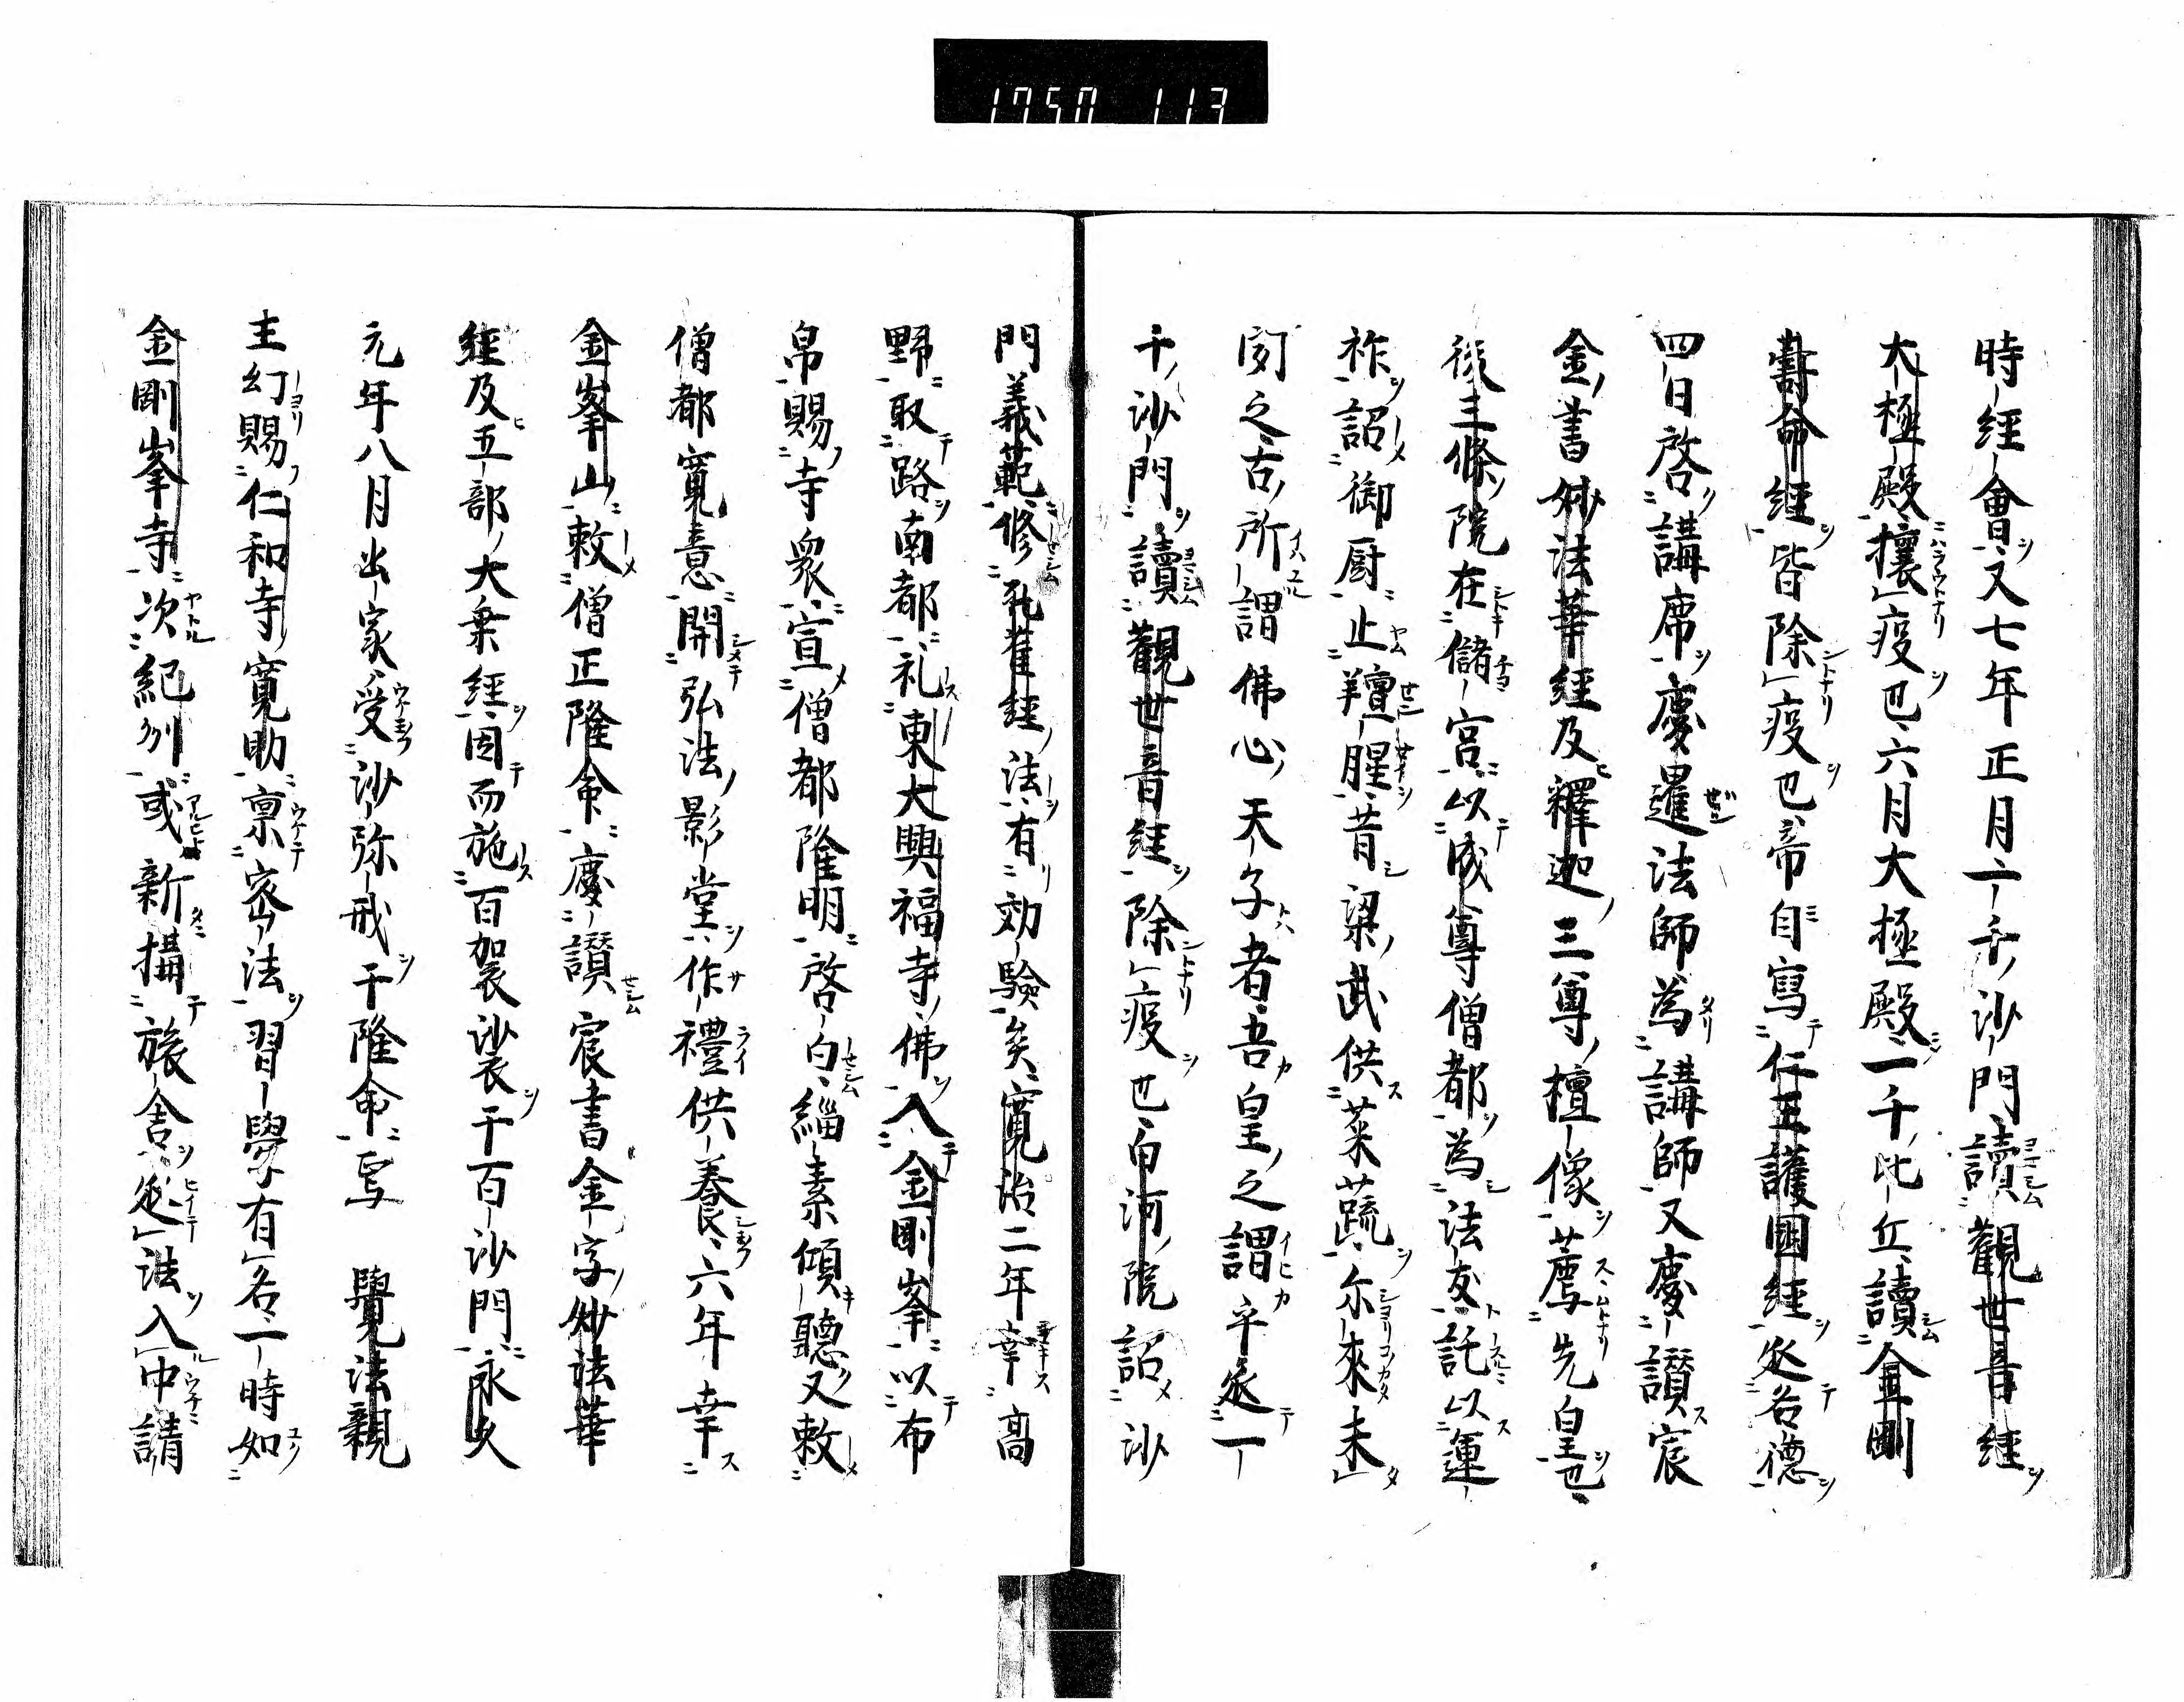 1750 113
時經會又七年正月一千沙門讀觀世音經
大極殿攘疫也六月大極殿一千比丘讀金剛
壽命經皆除疫也帝自寫仁王護國經延名德
四日啓講席慶暹法師為講師又慶讃宸
金書妙法華經及釋迦三尊檀像薦先皇也
後三條院在儲宮以成尊僧都為法友託以運
祚詔御厨止羶腥昔梁武供菜蔬尓來未
聞之古所謂佛心天子者吾皇之謂乎延一
千沙門讀觀世音經除疫也白河院詔沙
門義範修孔雀經法有効驗矣寛治二年幸高
野取路南都礼東大興福寺佛入金剛峯以布
帛賜寺衆宣僧都隆明啓白緇素傾聽又敕
僧都寛意開弘法影堂作禮供養六年幸
金峯山敕僧正隆命慶讃宸書金字妙法華
經及五部大乗經因而施百袈裟于百沙門永久
元年八月出家受沙弥戒于隆命写 覺法親
王幻賜仁和寺寛助稟密法習學有名一時如
金剛峯寺次紀州或新搆旅舎延誰入中請